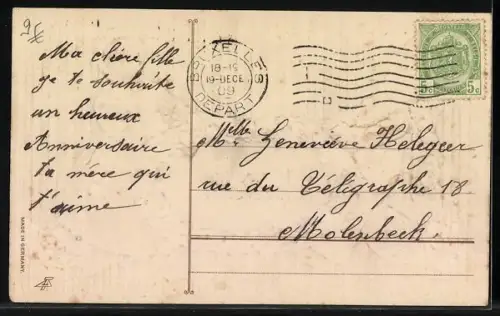 Ma chère fille
je te souhaite
un heureux
Anniversaire
ta mère qui
t'aime
BRUXELLES
18-19
19-DECE
09
DEPART
5c 5c
Mlle Geneviève Helegeer
rue du Télégraphe 18
Molenbeek.
MADE IN GERMANY.